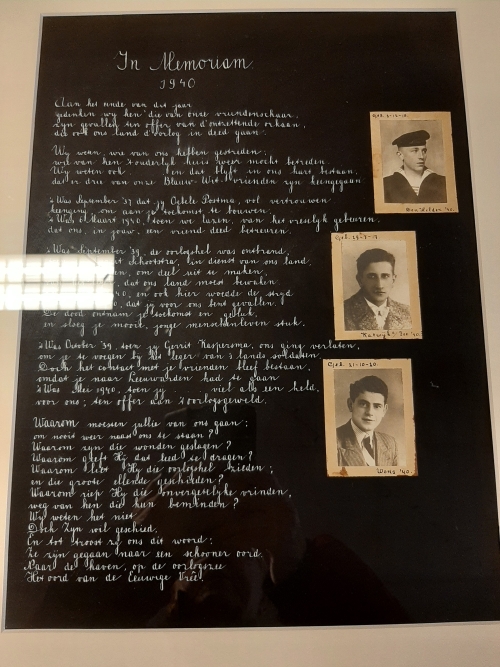 In Memoriam
1940
Aan het einde van dit jaar
gedenken wy hen die van onze vriendenschaar,
zyn gevallen ten offer aan d'ontzettende orkaan,
die ook ons land d'oorlog in deed gaan.
Wy weten, wie van ons hebben gestreden;
wie van hen 't ouderlyk huis weer mocht betreden.
Wy weten ook en dat blyft in ons hart bestaan,
dat er drie van onze Blauw-Wit-vrienden zyn heengegaan.
't Was September '37 dat jy Oetele Postma, vol vertrouwen
heenging om aan je toekomst te bouwen;
't Was Maart 1940, toen we lazen, van het vreselyk gebeuren,
dat ons, in jouw, een vriend deed betreuren.
't Was September '39, de oorlogshel was ontbrand,
Schootstra, in dienst van ons land.
om deel uit te maken,
dat ons land moest bewaken.
en ook hier woedde de stryd
dat jy voor ons bent gevallen!
De dood ontnam je toekomst en geluk,
en sloeg je mooie, jonge menschenleven stuk.
't Was October '39, toen jy Gerrit Kaspersma, ons ging verlaten,
om je te voegen by het leger van 's lands soldaten.
Doch het contact met je vrienden bleef bestaan,
omdat je naar Leeuwarden had te gaan
't Was Mei 1940, toen jy viel als een held,
voor ons; ten offer aan 't oorlogsgeweld.
Waarom moesten jullie van ons gaan;
om nooit weer naast ons te staan?
Waarom zyn die wonden geslagen?
Waarom geeft Hy dat leed te dragen?
Waarom liet Hy die oorlogshel zieden;
en die groote ellende geschieden?
Waarom riep Hy die onvergetelyke vrinden,
weg van hen die hun beminden?
Wy weten het niet
Doch Zyn wil geschied.
En tot troost zy ons dit woord:
Ze zyn gegaan naar een schooner oord.
Naar de haven, op de oorlogszee
Het oord van de Eeuwige Vreê.
Geb.
Den Helder '40.
Geb.
Katwyk Zee '40
Geb. 21-10-20
Wons '40.